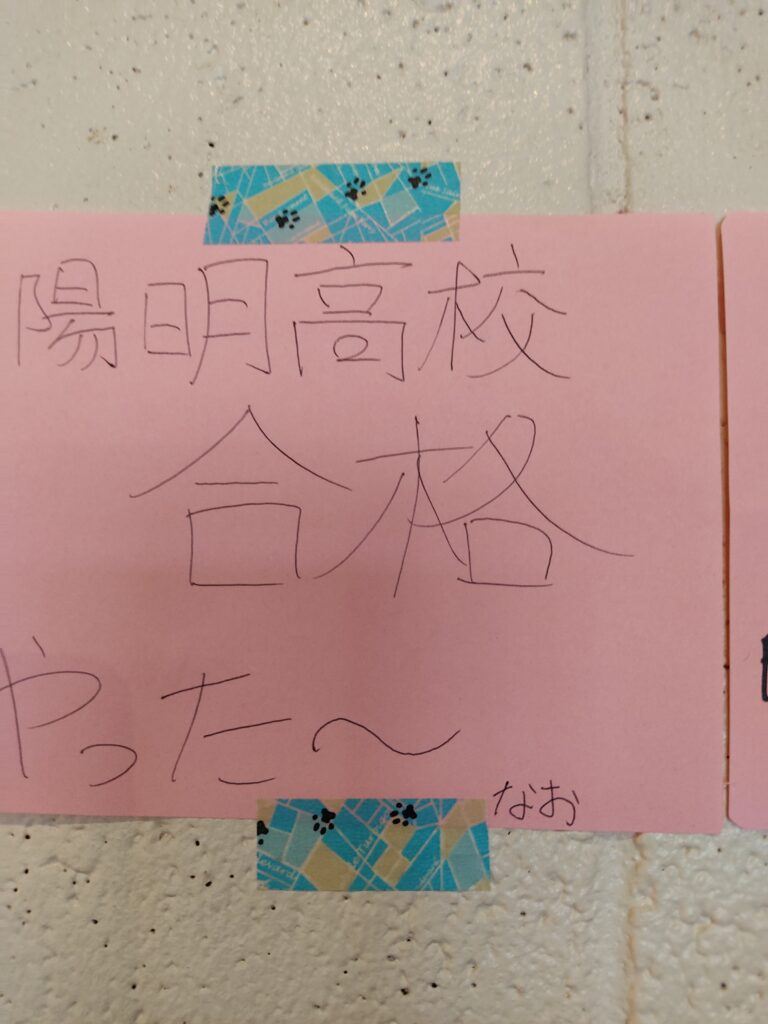 陽明高校
合格
やった〜
なお